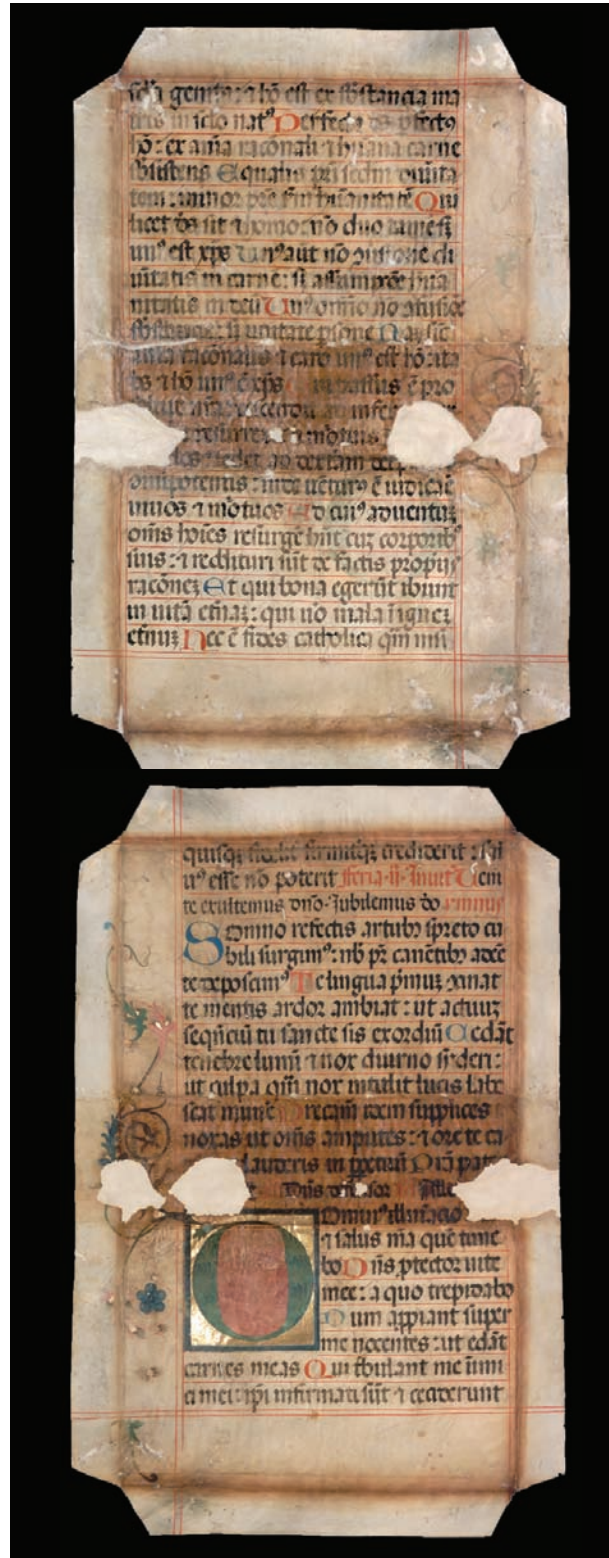 sc̄la genitꝰ: ⁊ hō est ex sb̄stancia ma
tris in sc̄lo natꝰ Perfectꝰ ds̄ ꝑfectꝰ
hō: ex aīa racōnali ⁊ hūana carne
sb̄sistens Equalis pr̄i scdm̄ diuīta
tem: minor pr̄e hūanitatē Qui
licet ds̄ sit ⁊ homo: nō duo tamē sꝫ
unꝰ est xp̄s Unꝰ aūt nō ꝯūsione di
uītatis in carne: sꝫ assumpcōe hūa
nitatis in deū Unꝰ om̄īo nō ꝯfusiōe
sb̄stancie: sꝫ unitate ꝑsone Nā sic̄
aīa racōnalis ⁊ caro unꝰ est hō: ita
ds̄ ⁊ hō unꝰ ē xp̄s passus ē pro
ad infe
resurrex mōtuis
sedet ad dextram
om̄ipotentis: inde uēturꝰ ē iudicaē
uiuos ⁊ mōtuos Ad cuiꝰ aduentuꝫ
om̄s hoīes resurgē hn̄t cuꝫ corporibꝰ
suis: ⁊ reddituri sūt de factis propijs
racōneꝫ Et qui bona egerūt ibunt
in uitā et̄naꝫ: qui uō mala ī igneꝫ
et̄nuꝫ Hec ē fides catholica qm̄ nisi
quisqꝫ fidelit̄ firmitqꝫ crediderit: salu
ꝰ esse nō poterit feria·ij·Inuit̄ Ueni
te exultemus dn̄o·Jubilemus dō ymnus
Somno refectis artubꝫ spreto cu
bili surgimꝰ: nb̄ pr̄ canētibꝫ adeē
te deposcimꝰ Te lingua p̄muꝫ ꝯcinat
te mentis ardor ambiat: ut actuuꝫ
seqn̄ciū tu sancte sis exordiū Cedāt
tenebre lumī ⁊ nox diurno sideri:
ut culpa qm̄ nox intulit lucis labe
scat mun̄e Precam̄ idem supplices
noxas ut om̄s amputes: ⁊ ore te ca
lauderis in ꝑpetuū
Dn̄s defensor
Dominꝰ illuīacio
⁊ salus mā quē time
bo Dn̄s ꝓtector uite
mee: a quo trepidabo
Dum appīant super
me nocentes: ut edāt
carnes meas Qui tb̄ulant me īimi
ci mei: ip̄i infirmati sūt ⁊ ceciderunt